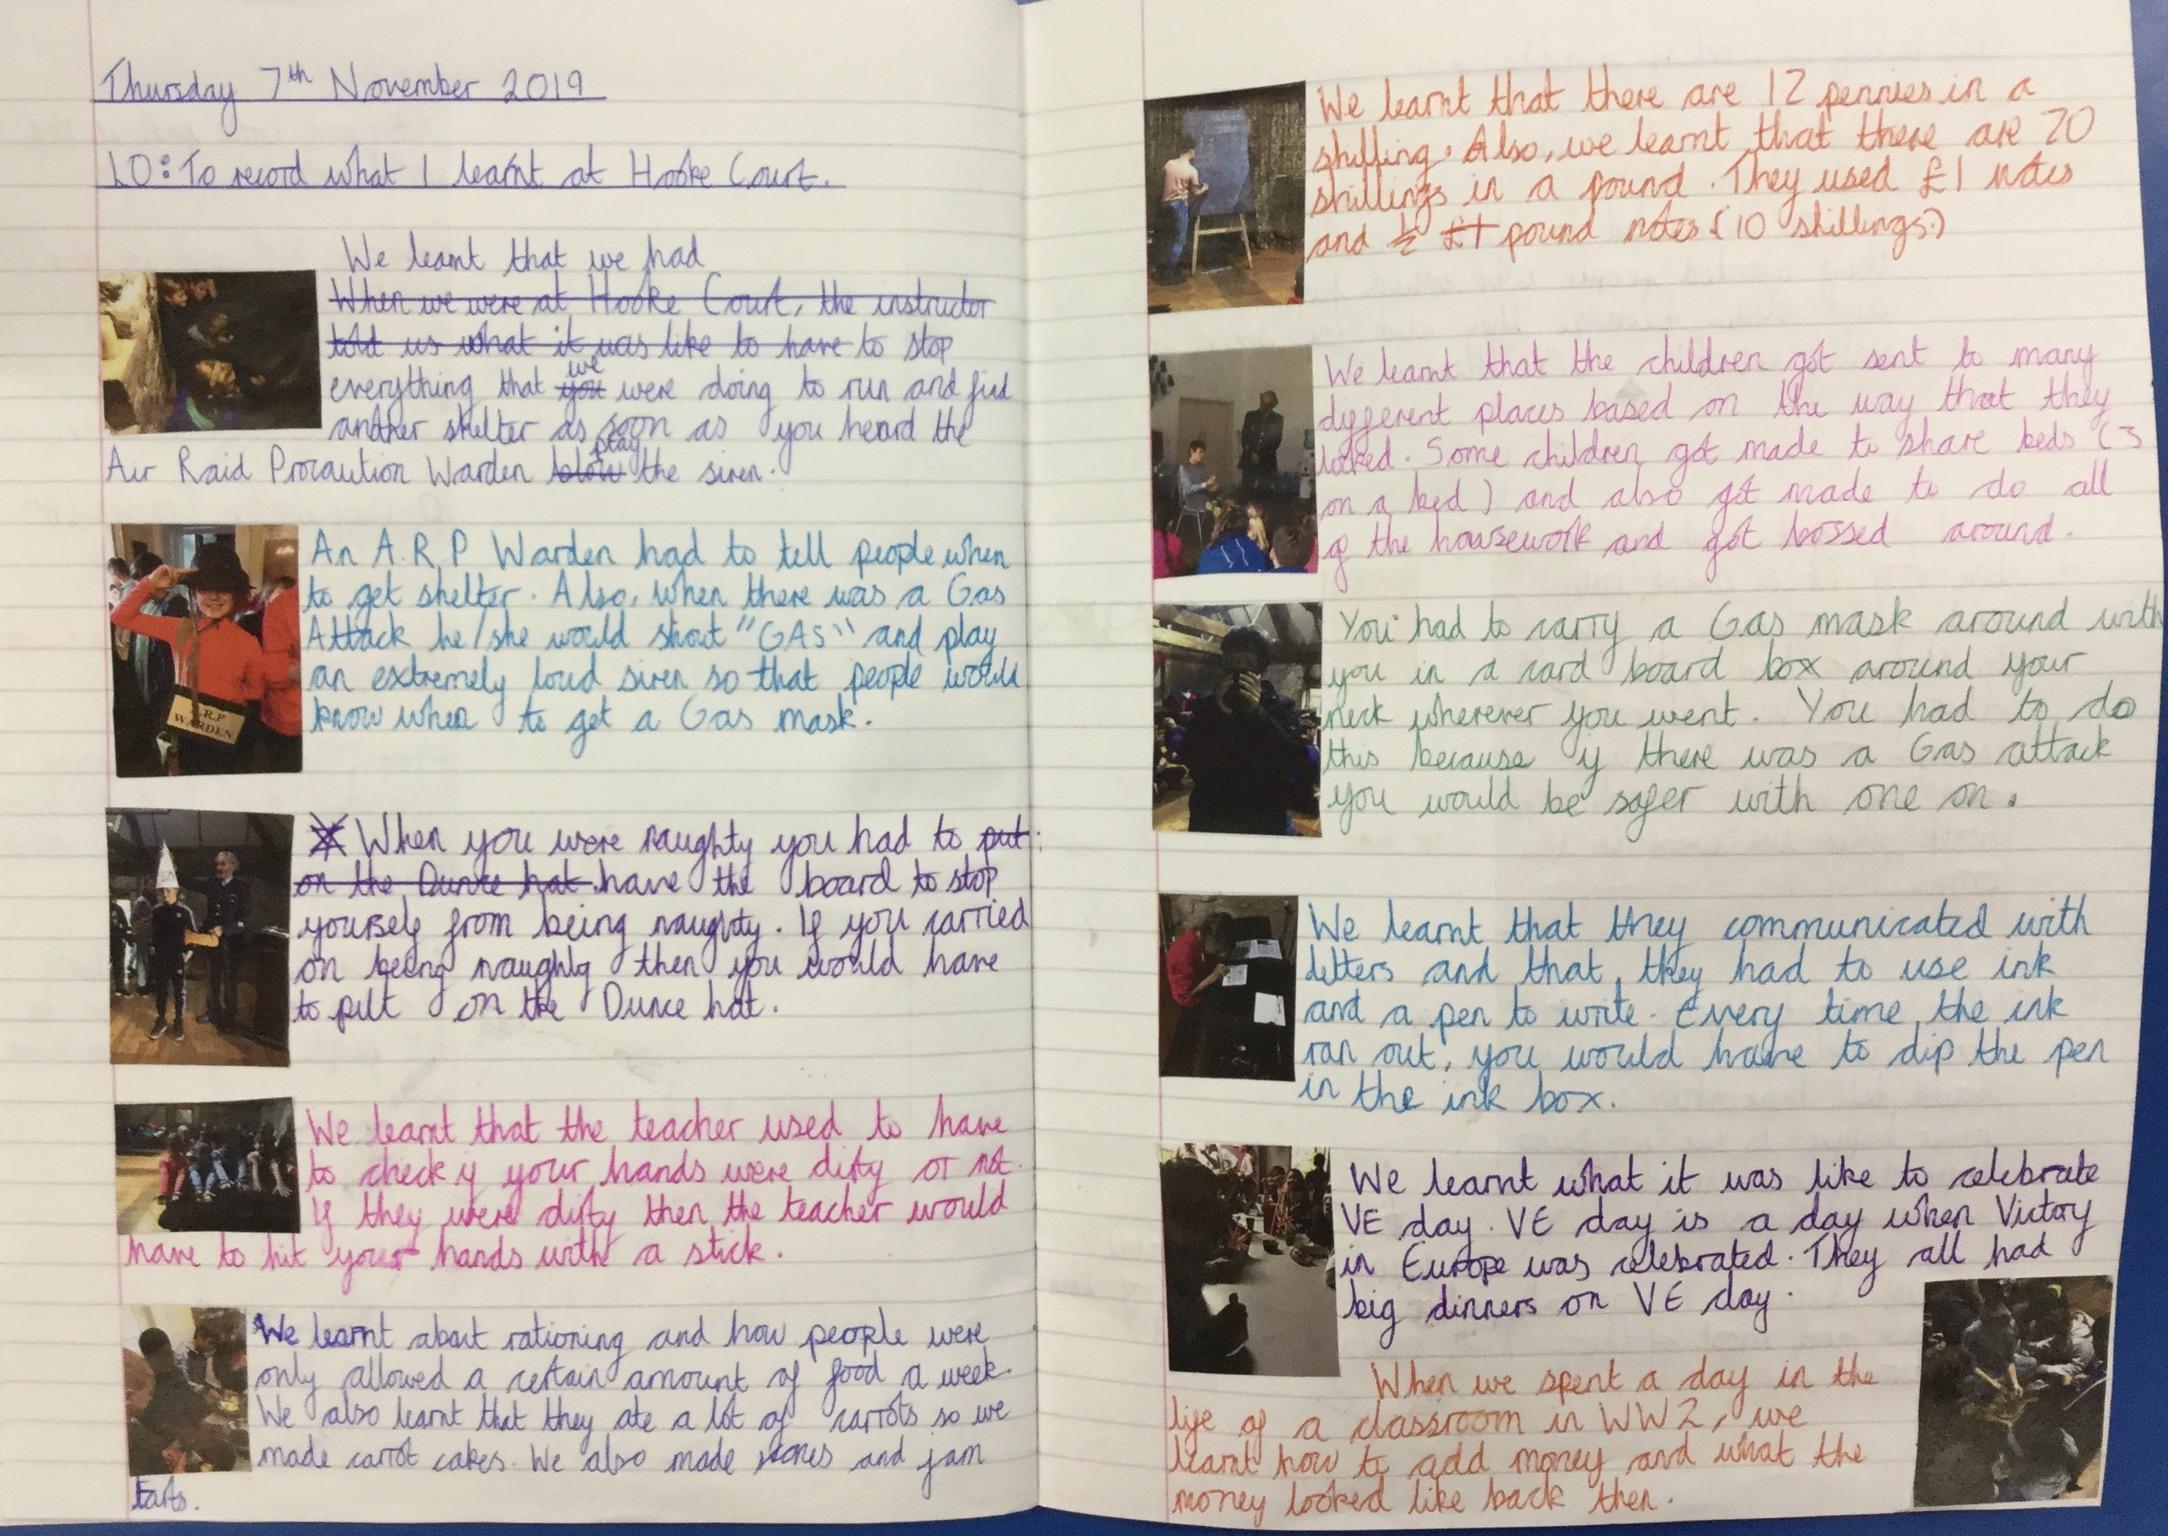 Thursday 7th November 2019
LO: To record what I learnt at Hooke Court.
We learnt that we had
When we were at Hooke Court, the instructor
told us what it was like to have to stop
we
everything that you were doing to run and find
another shelter as soon as you heard the
play
Air Raid Procaution Warden blow the siren.
An A.R.P Warden had to tell people when
to get shelter. Also, when there was a Gas
Attack he/she would shout "GAS" and play
an extremely loud siren so that people would
know when to get a Gas mask.
A.R.P
WARDEN
When you were naughty you had to put
on the Dunce hat have the board to stop
yourself from being naughty. If you carried
on being naughty then you would have
to put on the Dunce hat.
We learnt that the teacher used to have
to check if your hands were dirty or not.
If they were dirty then the teacher would
have to hit your hands with a stick.
We learnt about rationing and how people were
only allowed a certain amount of food a week.
We also learnt that they ate a lot of carrots so we
made carrot cakes. We also made scones and jam
tarts.
We learnt that there are 12 pennies in a
shilling. Also, we learnt that there are 20
shillings in a pound. They used £1 notes
and ½ £1 pound notes (10 shillings.)
We learnt that the children got sent to many
different places based on the way that they
looked. Some children got made to share beds (3
on a bed) and also got made to do all
of the housework and got bossed around.
You had to carry a Gas mask around with
you in a card board box around your
neck wherever you went. You had to do
this because if there was a Gas attack
you would be safer with one on.
We learnt that they communicated with
letters and that they had to use ink
and a pen to write. Every time the ink
ran out, you would have to dip the pen
in the ink box.
We learnt what it was like to celebrate
VE day. VE day is a day when Victory
in Europe was celebrated. They all had
big dinners on VE day.
When we spent a day in the
life of a classroom in WW2, we
learnt how to add money and what the
money looked like back then.